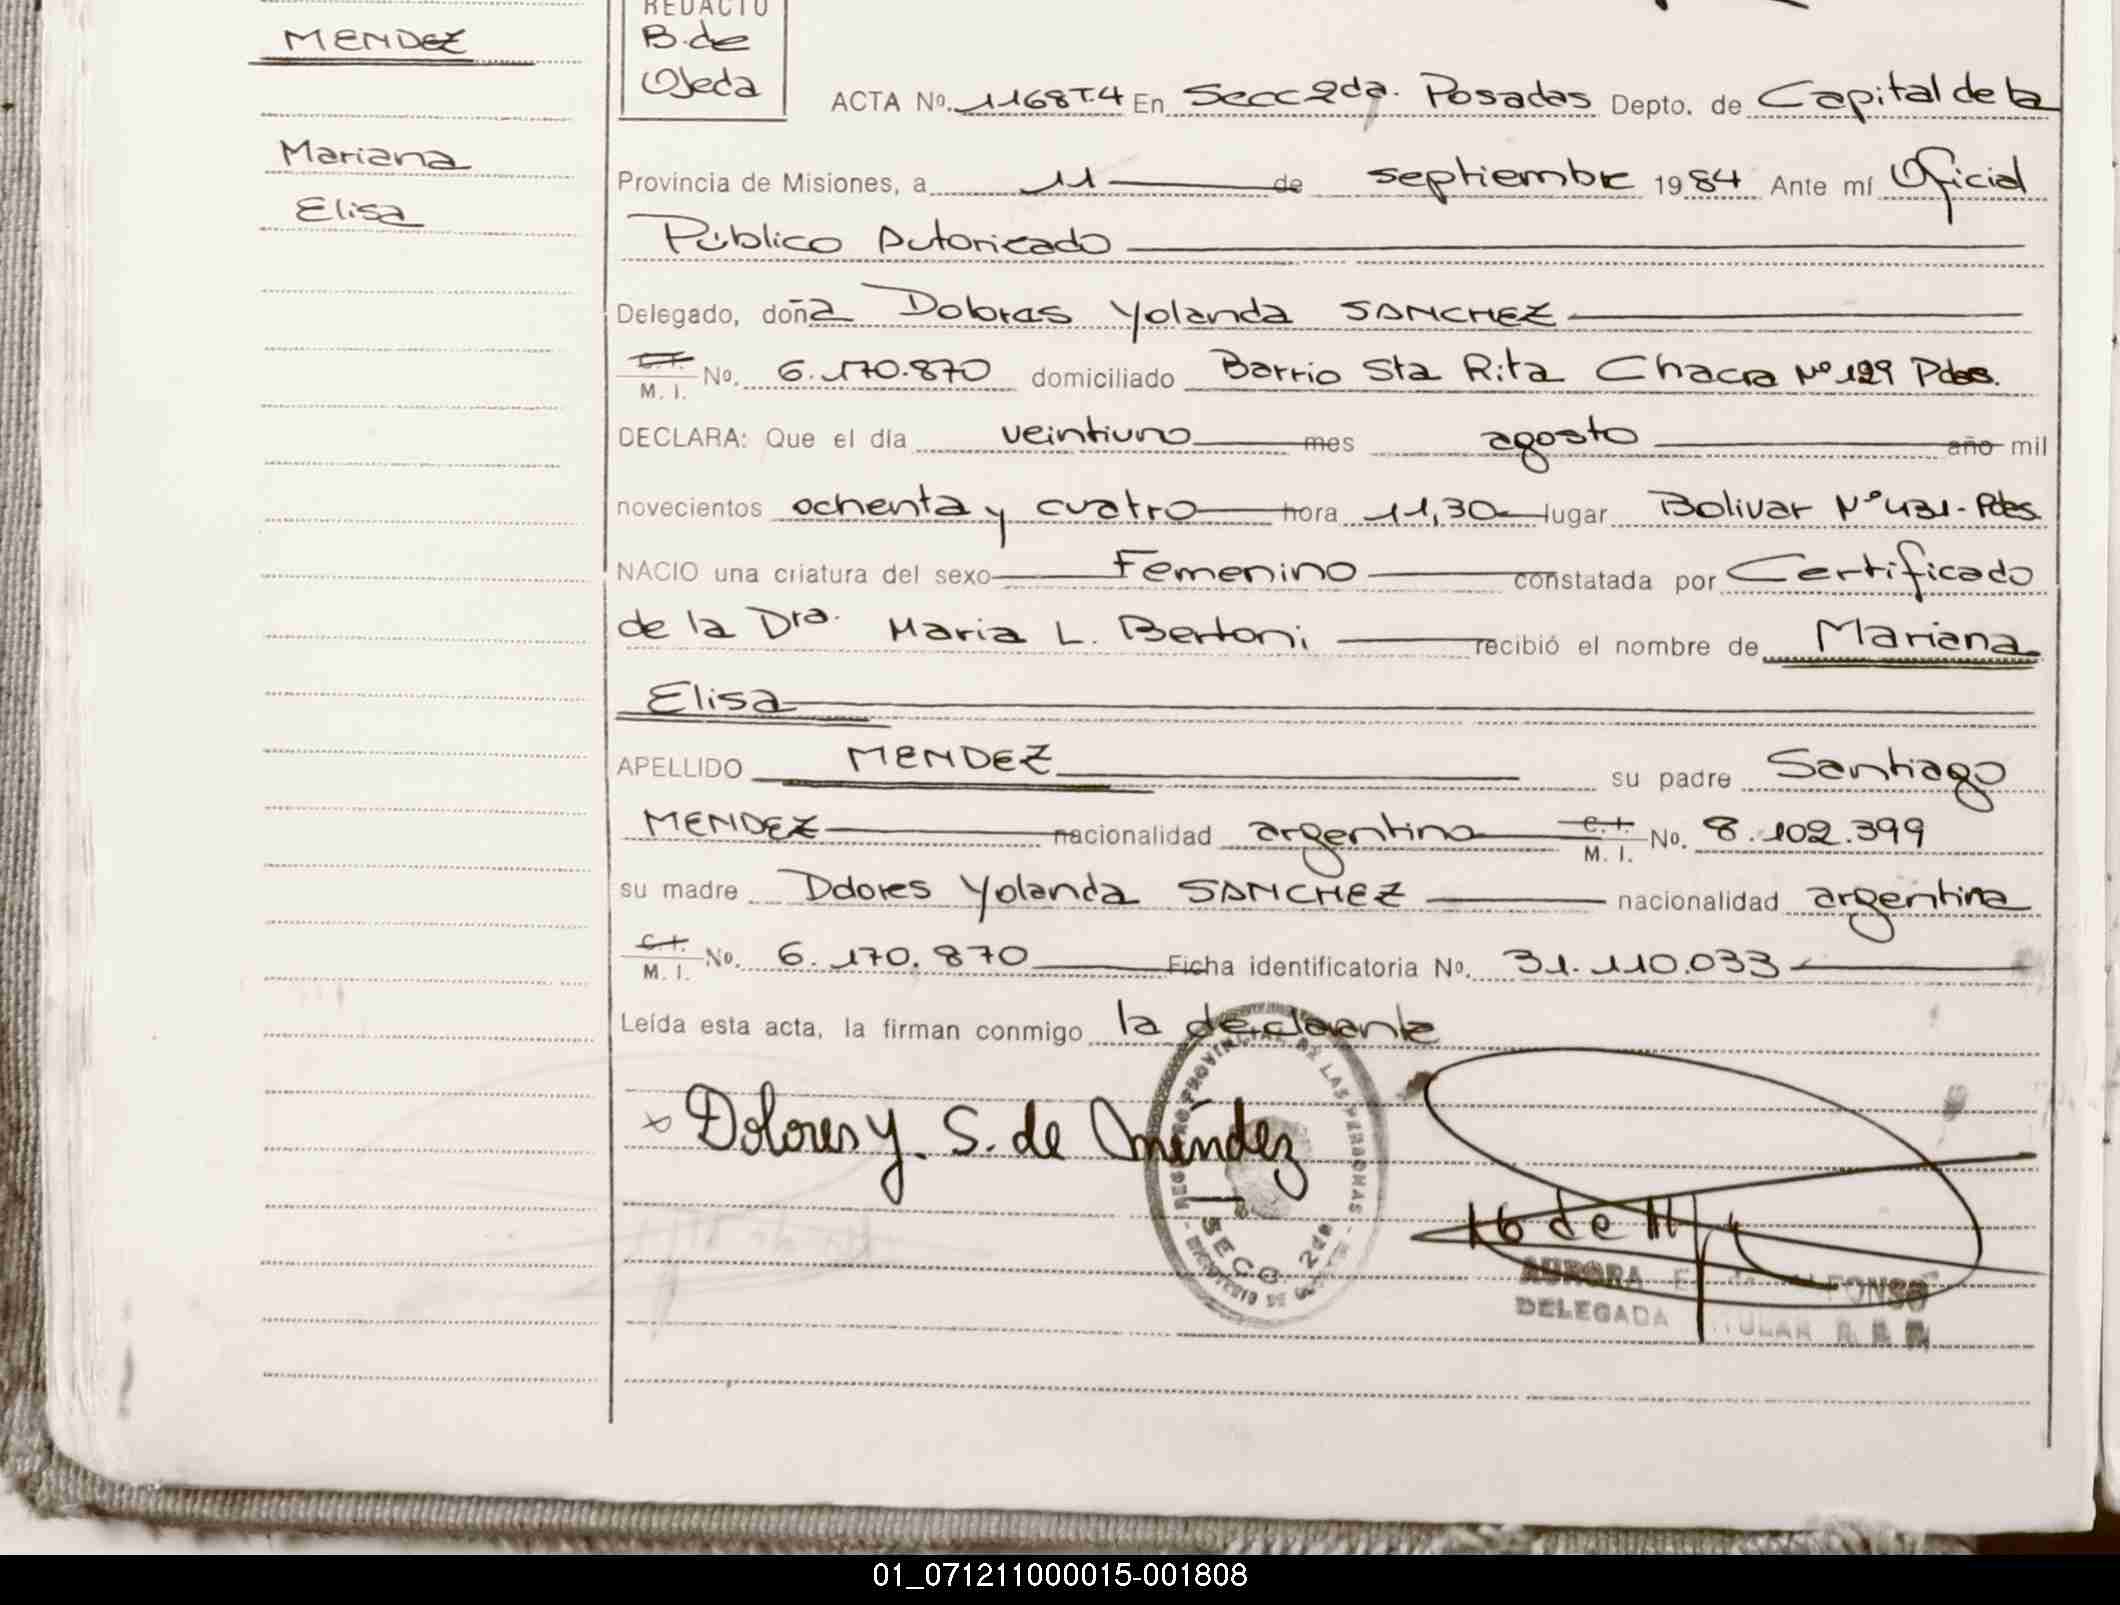 REDACTO
B. de
Ojeda
MENDEZ
Mariana
Elisa
ACTA No. 1168T.4 En Secc 2da. Posadas Depto. de Capital de la
Provincia de Misiones, a 11 de septiembre 1984 Ante mí Oficial
Público Autorizado
Delegado, doña Dolores Yolanda SANCHEZ
C. I. M. I. No. 6.170.870 domiciliado Barrio Sta Rita Chacra Nº 129 Pdas.
DECLARA: Que el día veintiuno mes agosto año mil
novecientos ochenta y cuatro hora 11,30 lugar Bolivar Nº 431 - Pdas.
NACIO una criatura del sexo Femenino constatada por Certificado
de la Dra. Maria L. Bertoni recibió el nombre de Mariana
Elisa
APELLIDO MENDEZ su padre Santiago
MENDEZ nacionalidad argentina C. I. M. I. No. 8.102.399
su madre Dolores Yolanda SANCHEZ nacionalidad argentina
C. I. M. I. No. 6.170.870 Ficha identificatoria No. 31.110.033
Leída esta acta, la firman conmigo la declarante
Dolores Y. S. de Méndez
REGISTRO PROVINCIAL DE LAS PERSONAS
SECC 2da
AURORA
DELEGADA TITULAR R. P. P.
01_071211000015-001808